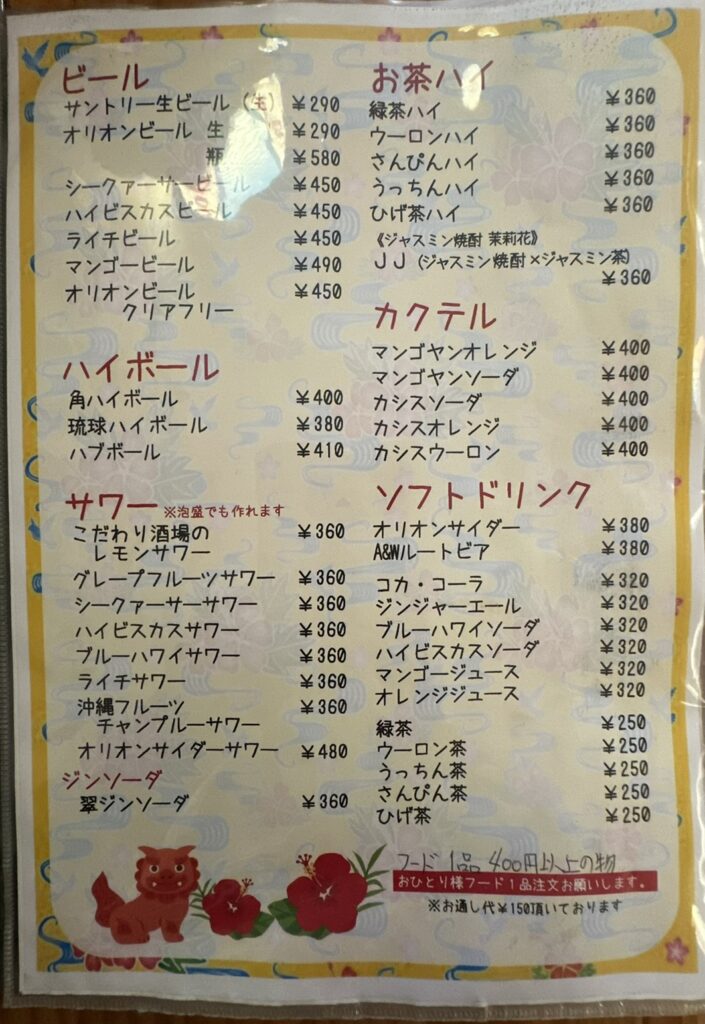 ビール
サントリー生ビール (生) ¥290
オリオンビール 生 ¥290
瓶 ¥580
シークァーサービール ¥450
ハイビスカスビール ¥450
ライチビール ¥450
マンゴービール ¥490
オリオンビール ¥450
クリアフリー
ハイボール
角ハイボール ¥400
琉球ハイボール ¥380
ハブボール ¥410
サワー ※泡盛でも作れます
こだわり酒場の ¥360
レモンサワー
グレープフルーツサワー ¥360
シークァーサーサワー ¥360
ハイビスカスサワー ¥360
ブルーハワイサワー ¥360
ライチサワー ¥360
沖縄フルーツ ¥360
チャンプルーサワー
オリオンサイダーサワー ¥480
ジンソーダ
翠ジンソーダ ¥360
お茶ハイ
緑茶ハイ ¥360
ウーロンハイ ¥360
さんぴんハイ ¥360
うっちんハイ ¥360
ひげ茶ハイ ¥360
《ジャスミン焼酎 茉莉花》
JJ (ジャスミン焼酎×ジャスミン茶)
¥360
カクテル
マンゴヤンオレンジ ¥400
マンゴヤンソーダ ¥400
カシスソーダ ¥400
カシスオレンジ ¥400
カシスウーロン ¥400
ソフトドリンク
オリオンサイダー ¥380
A&Wルートビア ¥380
コカ・コーラ ¥320
ジンジャーエール ¥320
ブルーハワイソーダ ¥320
ハイビスカスソーダ ¥320
マンゴージュース ¥320
オレンジジュース ¥320
緑茶 ¥250
ウーロン茶 ¥250
うっちん茶 ¥250
さんぴん茶 ¥250
ひげ茶 ¥250
フード 1品 400円以上の物
おひとり様フード1品注文お願いします。
※お通し代¥150頂いております